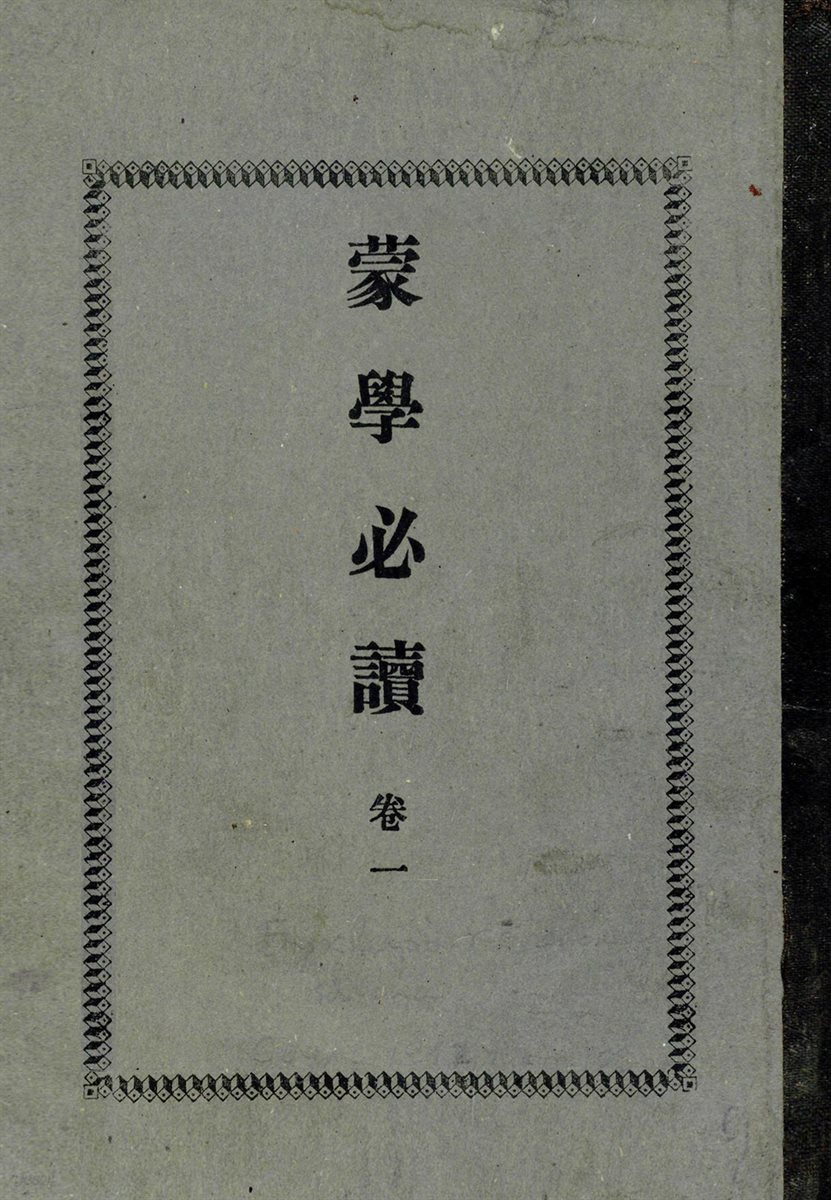 蒙學必讀 卷一